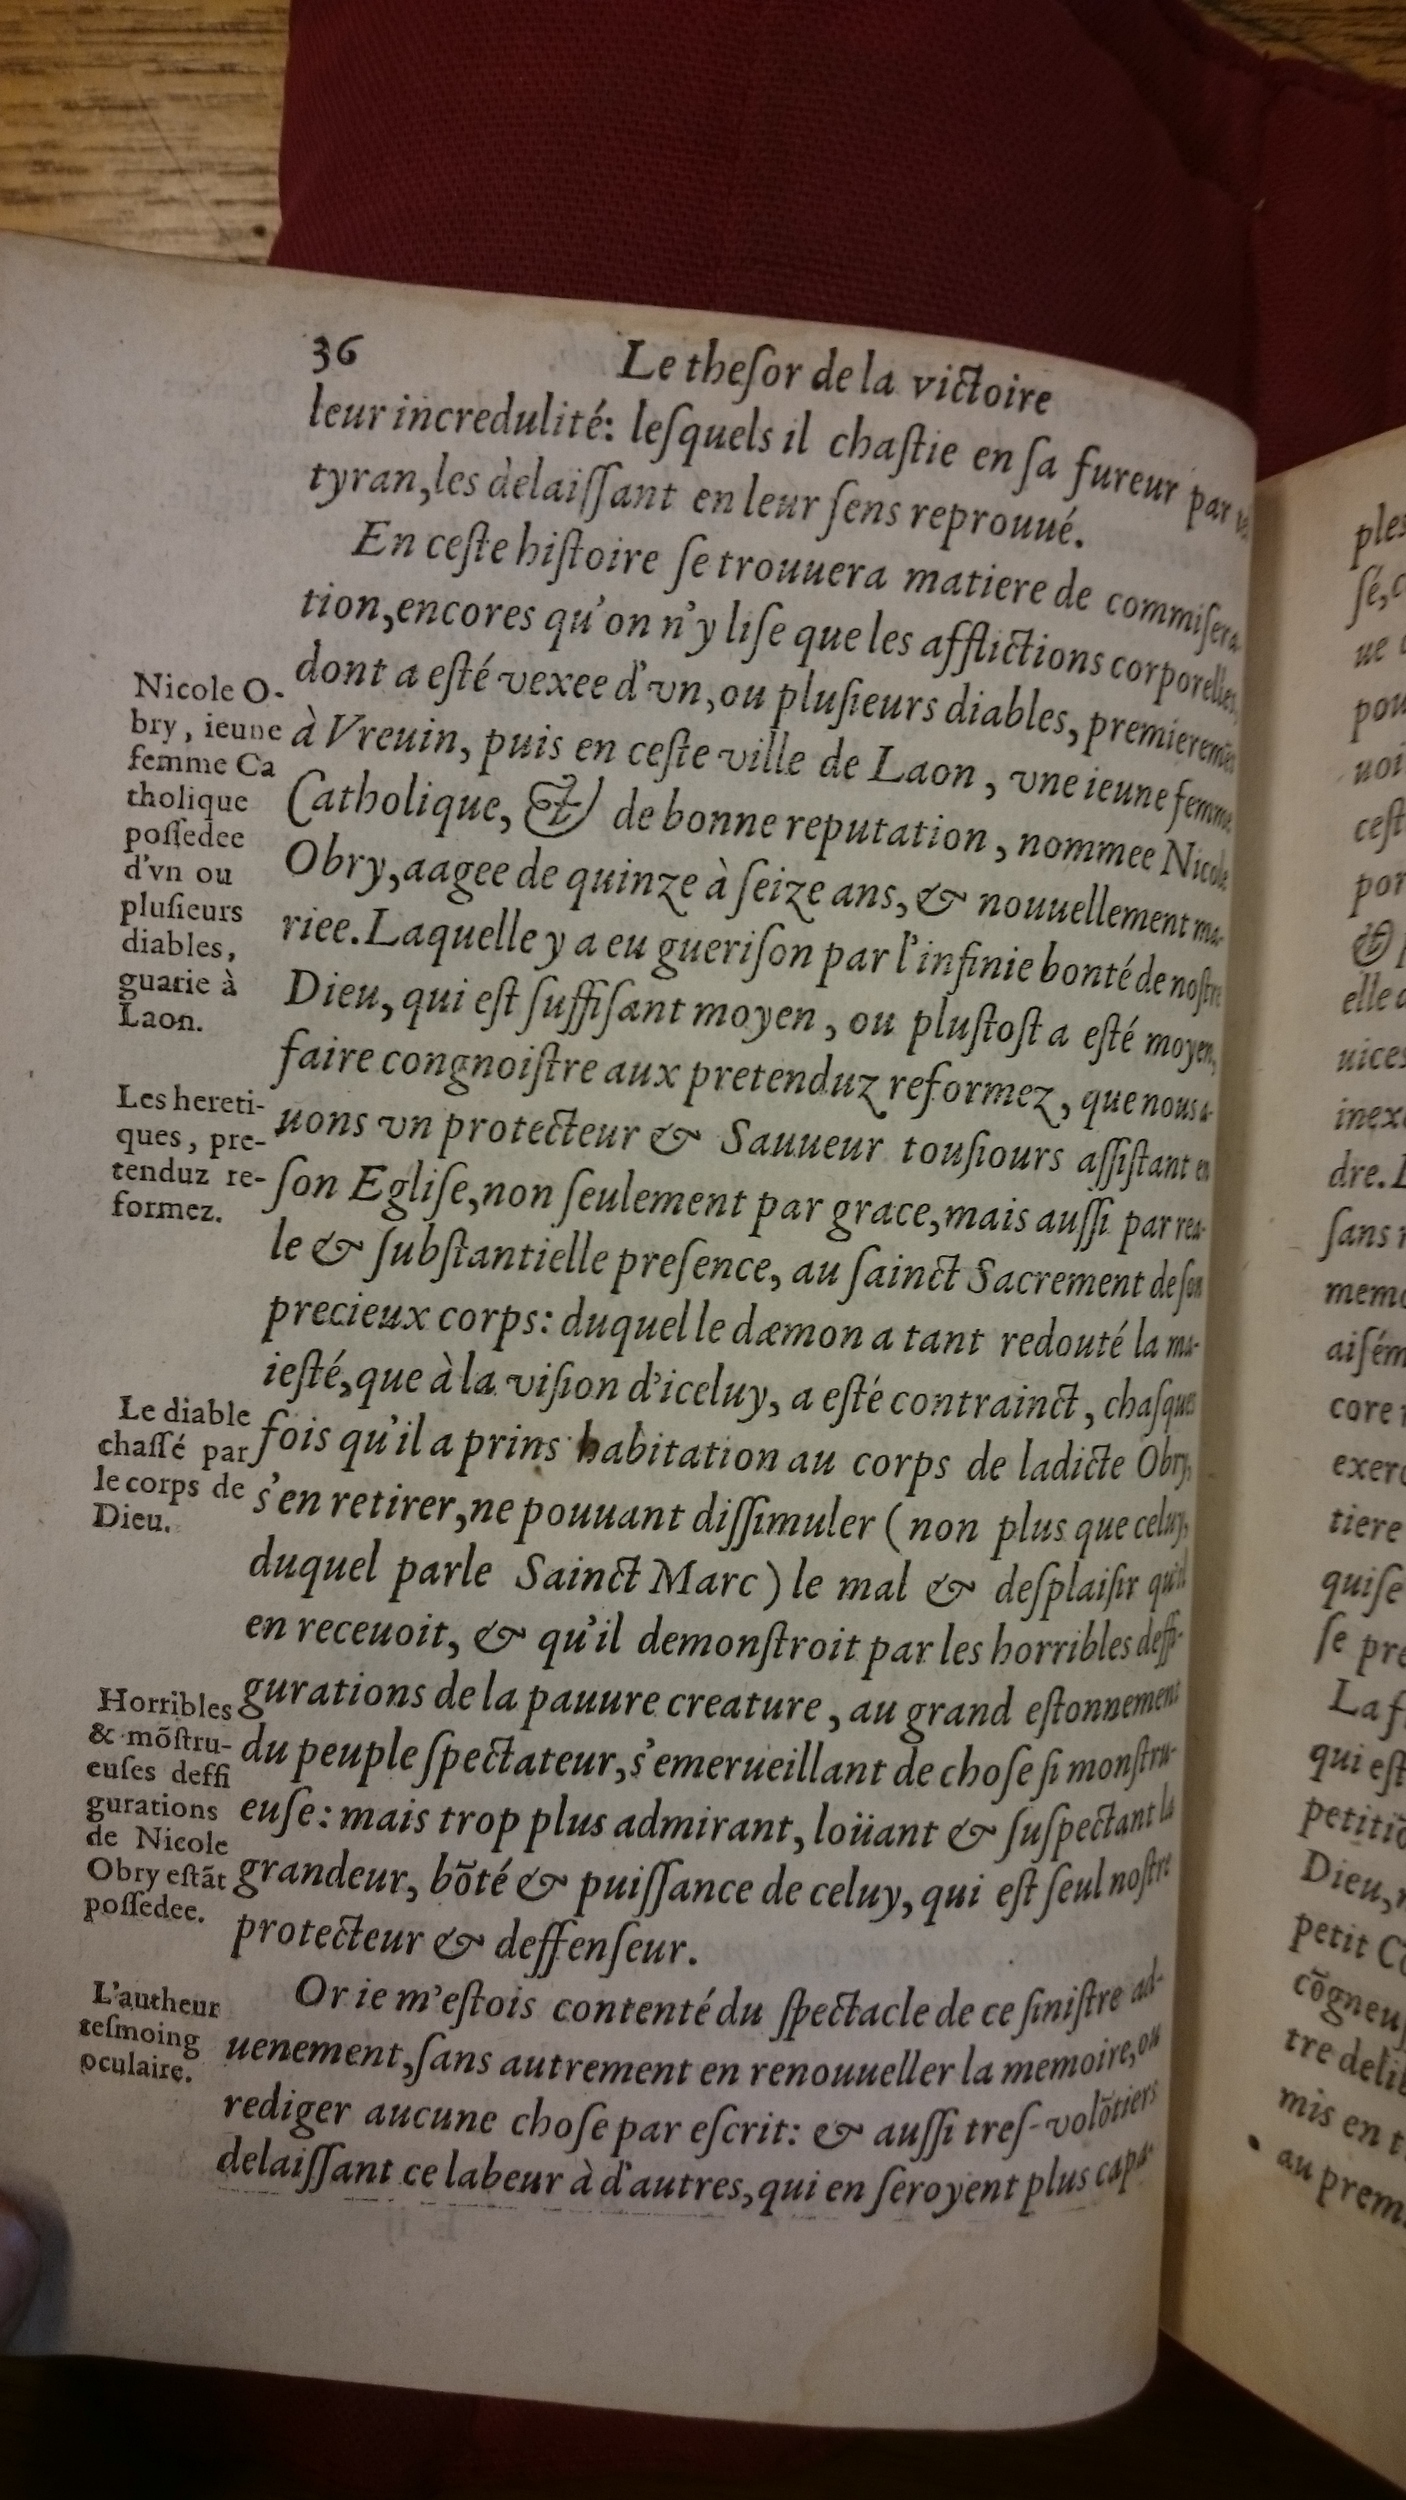 36 Le theſor de la victoire
leur incredulité: leſquels il chaſtie en ſa fureur par
tyran, les delaiſſant en leur ſens reprouué.
En ceſte hiſtoire ſe trouuera matiere de commiſera-
tion, encores qu'on n'y liſe que les afflictions corporelles,
dont a eſté vexee d'vn, ou pluſieurs diables, premieremẽt
à Vreuin, puis en ceſte ville de Laon, vne ieune femme
Catholique, & de bonne reputation, nommee Nicole
Obry, aagee de quinze à ſeize ans, & nouuellement ma-
riee. Laquelle y a eu gueriſon par l'infinie bonté de noſtre
Dieu, qui eſt ſuffiſant moyen, ou pluſtoſt a eſté moyen,
faire congnoiſtre aux pretenduz reformez, que nous a-
uons vn protecteur & Sauueur touſiours aſſiſtant en
ſon Egliſe, non ſeulement par grace, mais auſſi par rea-
le & ſubſtantielle preſence, au ſainct Sacrement de ſon
precieux corps: duquel le dæmon a tant redouté la ma-
ieſté, que à la viſion d'iceluy, a eſté contrainct, chaſques
fois qu'il a prins habitation au corps de ladicte Obry,
s'en retirer, ne pouuant diſſimuler (non plus que celuy,
duquel parle Sainct Marc) le mal & deſplaiſir qu'il
en receuoit, & qu'il demonſtroit par les horribles deffi-
gurations de la pauure creature, au grand eſtonnement
du peuple ſpectateur, s'emerueillant de choſe ſi monſtru-
euſe: mais trop plus admirant, loüant & ſuſpectant la
grandeur, bõté & puiſſance de celuy, qui eſt ſeul noſtre
protecteur & deffenſeur.
Or ie m'eſtois contenté du ſpectacle de ce ſiniſtre ad-
uenement, ſans autrement en renouueller la memoire, ou
rediger aucune choſe par eſcrit: & auſſi treſ-volõtiers
delaiſſant ce labeur à d'autres, qui en ſeroyent plus capa-
Nicole O-
bry, ieune
femme Ca
tholique
poſſedee
d'vn ou
pluſieurs
diables,
guarie à
Laon.
Les hereti-
ques, pre-
tenduz re-
formez.
Le diable
chaſſé par
le corps de
Dieu.
Horribles
& mõſtru-
euſes deffi
gurations
de Nicole
Obry eſtãt
poſſedee.
L'autheur
teſmoing
oculaire.
ples
ſé,
ue
pou
uoi
ceſt
por
&
elle
uices
inex
dre.
ſans
memo
aiſém
core
exerc
tiere
quiſe
ſe pre
La f
qui eſt
petitiõ
Dieu,
petit Co
cõgneu
tre delib
mis en t
au prem